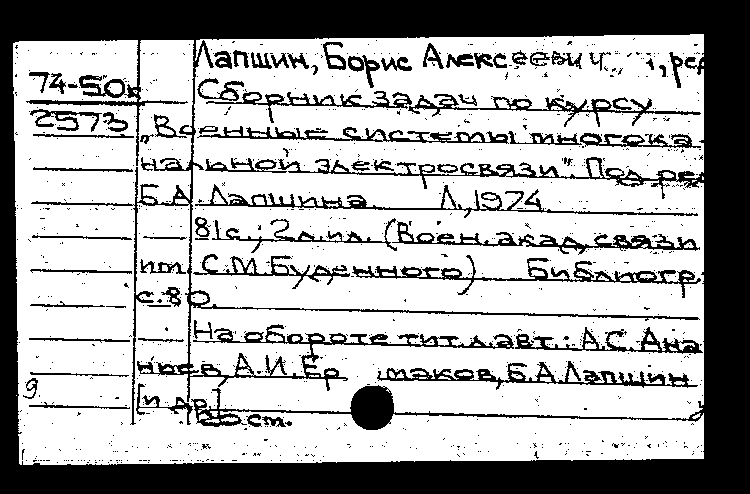 Лапшин, Борис Алексеевич, ред
74-50к
Сборник задач по курсу
2573
„Военные системы многока-
нальной электросвязи". Под ред
Б.А. Лапшина. Л., 1974.
81с.; 2л.ил. (Воен. акад. связи
им. С.М. Буденного). Библиогр.:
с.80.
На обороте тит. л. авт.: А.С. Ана
ньев, А.И. Ер маков, Б.А. Лапшин
9
[и др]
ст.